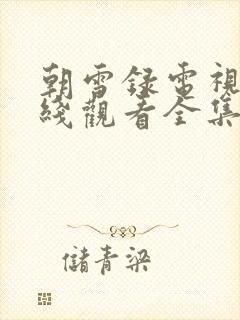 朝雪録電視
綫觀看全集
儲青梁